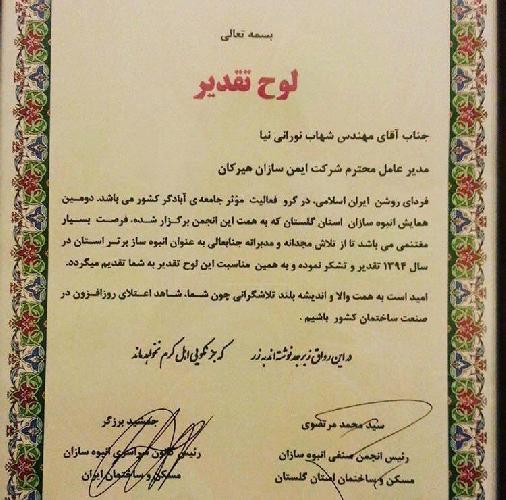 بسمه تعالی
لوح تقدیر
جناب آقای مهندس شهاب نورانی نیا
مدیر عامل محترم شرکت ایمن سازان هیرکان
فردای روشن ایران اسلامی، در گرو فعالیت مؤثر جامعه‌ی آبادگر کشور می باشد. دومین
همایش انبوه سازان استان گلستان که به همت این انجمن برگزار شده، فرصت بسیار
مغتنمی می باشد تا از تلاش مجدانه و مدبرانه جنابعالی به عنوان انبوه ساز برتر استان در
سال ۱۳۹۴ تقدیر و تشکر نموده و به همین مناسبت این لوح تقدیر به شما تقدیم میگردد.
امید است به همت والا و اندیشه بلند تلاشگرانی چون شما، شاهد اعتلای روزافزون در
صنعت ساختمان کشور باشیم .
در این رواق زبرجد نوشته اند به زر که جز نکویی اهل کرم نخواهد ماند
سید محمد مرتضوی
رئیس انجمن صنفی انبوه سازان
مسکن و ساختمان استان گلستان
جمشید برزگر
رئیس کانون سراسری انبوه سازان
مسکن و ساختمان ایران